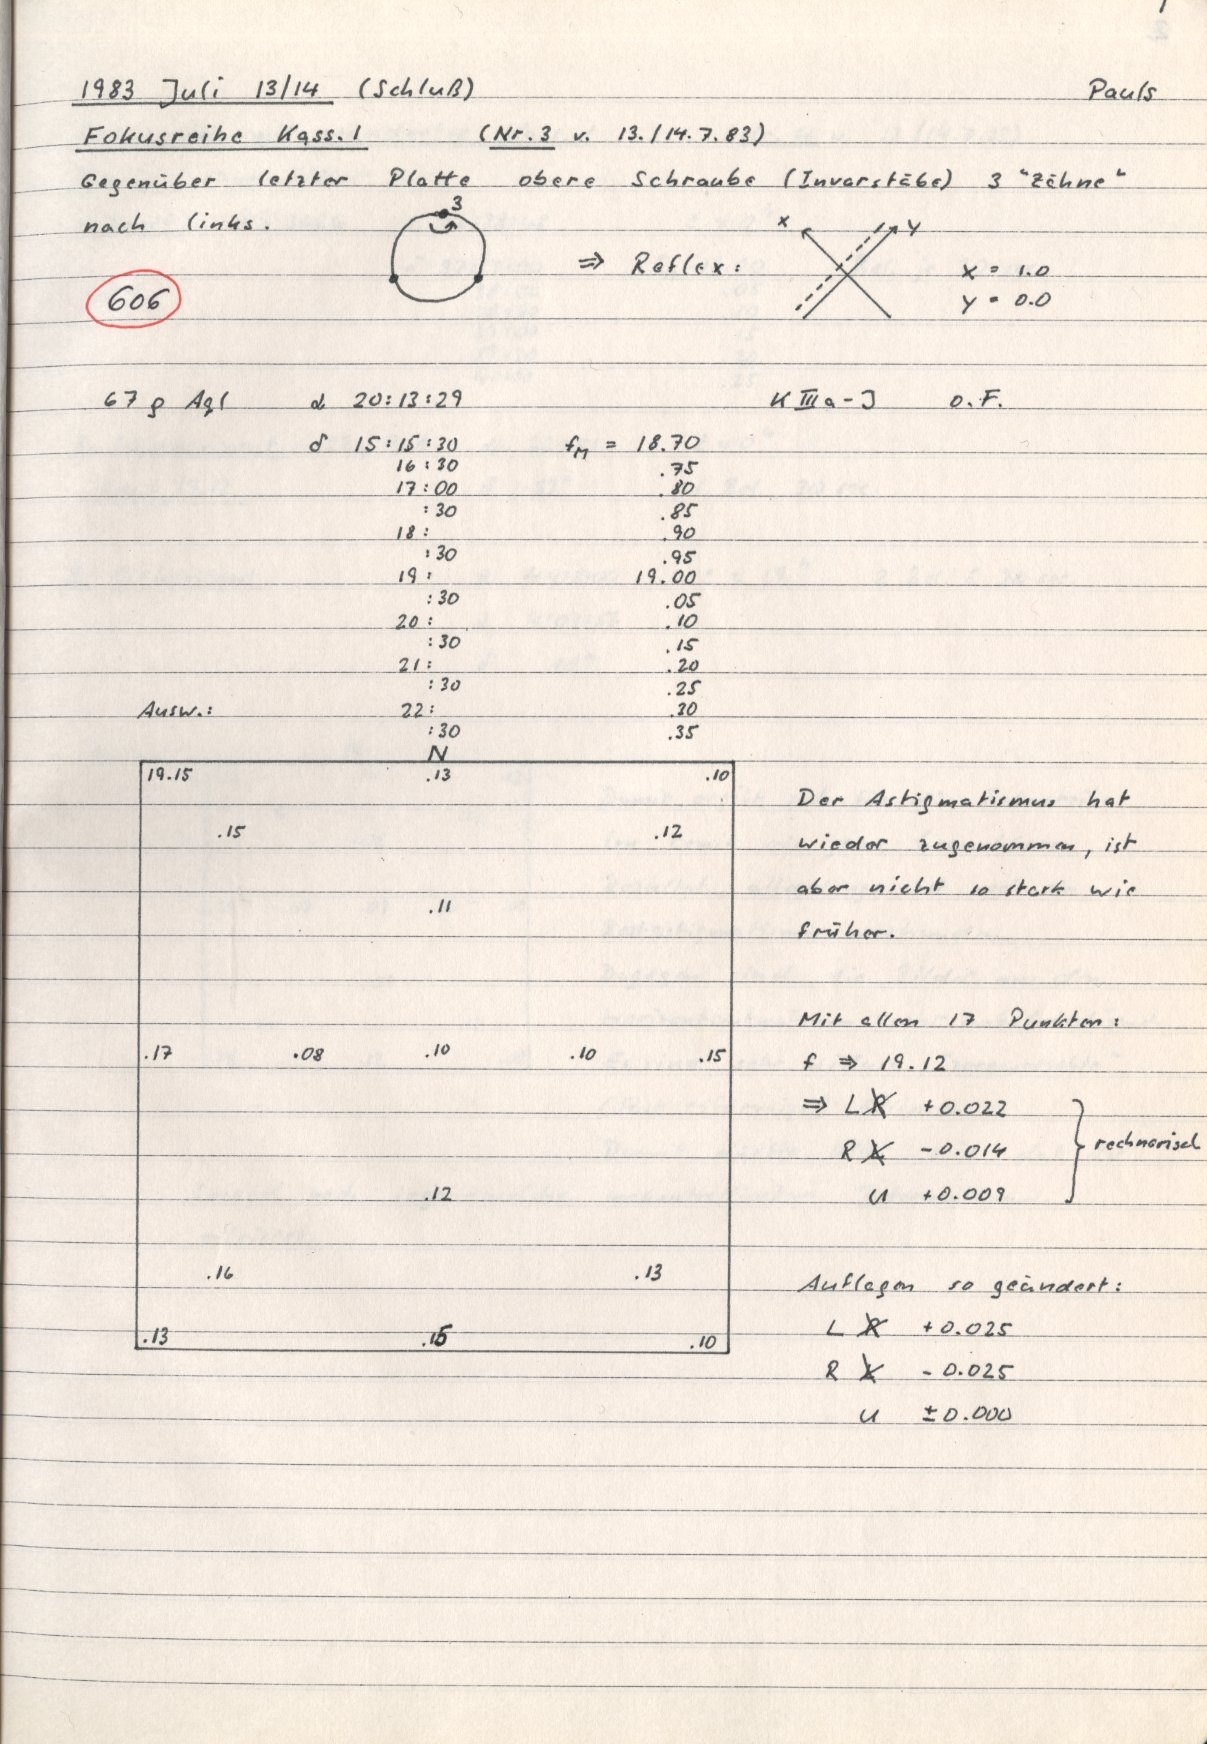 1983 Juli 13/14 (Schluß) Pauls
Fokusreihe Kass. 1 (Nr. 3 v. 13./14.7.83)
Gegenüber letzter Platte obere Schraube (Invarstäbe) 3 "Zähne"
nach links.
3
⇒ Reflex:
x y
x = 1.0
y = 0.0
606
67 ρ Aql α 20:13:29 K IIIa-J o.F.
δ 15:15:30 fM = 18.70
16:30 .75
17:00 .80
:30 .85
18: .90
:30 .95
19: 19.00
:30 .05
20: .10
:30 .15
21: .20
:30 .25
Ausw.: 22: .30
:30 .35
N
19.15 .13 .10
.15 .12
.11
.17 .08 .10 .10 .15
.12
.16 .13
.13 .15 .10
Der Astigmatismus hat
wieder zugenommen, ist
aber nicht so stark wie
früher.
Mit allen 17 Punkten:
f ⇒ 19.12
⇒ L +0.022
R -0.014
U +0.009
rechnerisch
Auflagen so geändert:
L +0.025
R -0.025
U ±0.000